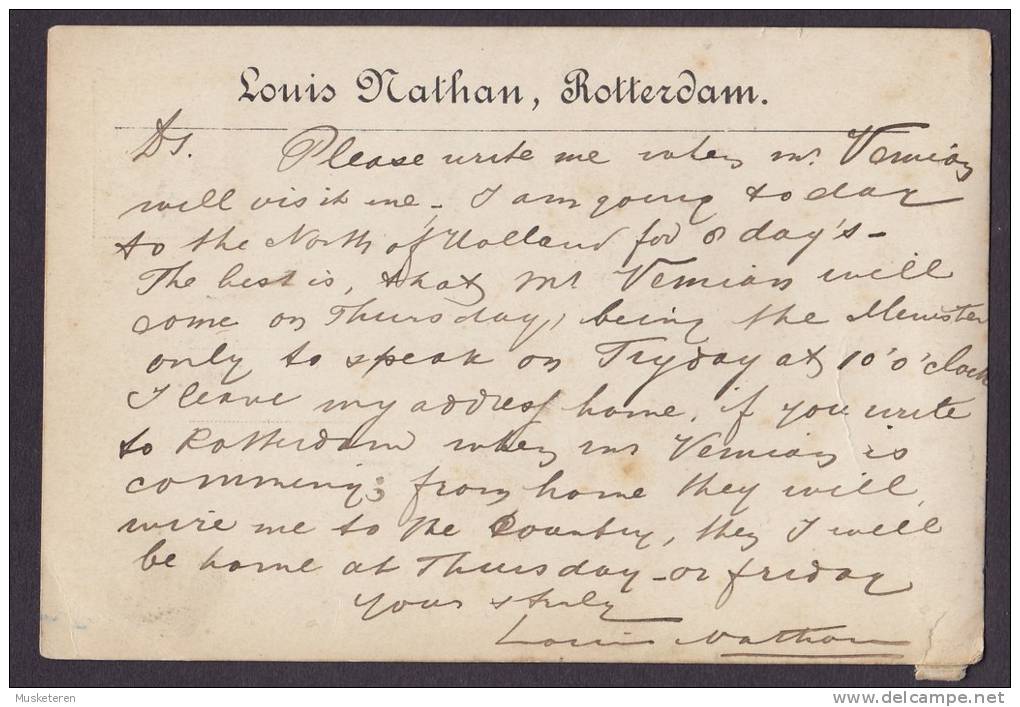 Louis Nathan, Rotterdam.
Ds. Please write me when mr. Vemian
will visit me, I am going to day
to the North of Holland for 8 day's –
The best is, that mr Vemian will
come on Thursday, being the Menister
only to speak on Fryday at 10 o'clock
I leave my address home, if you write
to Rotterdam when mr Vemian is
comming; from home they will
wire me to the Country, then I will
be home at Thursday – or friday
yours truly
Louis Nathan
Musketeren
delcampe.net